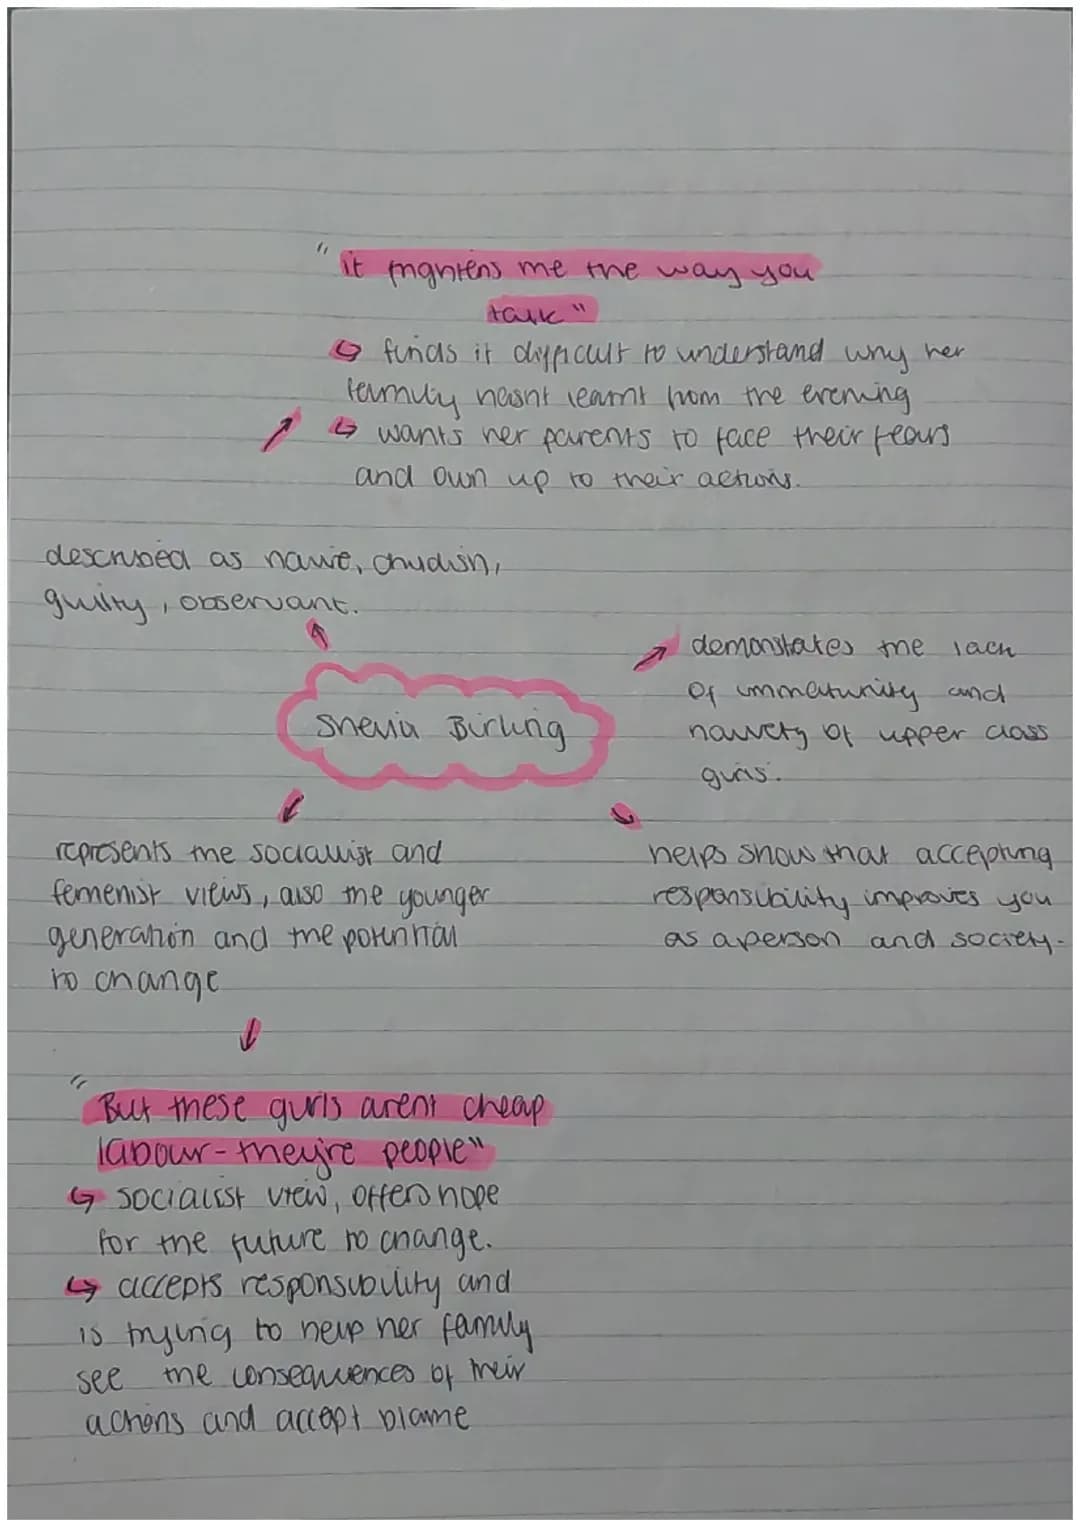 "it frightens me the way you
talk"
↳ finds it difficult to understand why her
family hasnt learnt from the evening
↳ wants her parents to face their fears
and own up to their actions.
described as naive, childish,
guilty, observant.
demonstates the lack
of immaturity and
naivety of upper class
girls.
Sheila Birling
represents the socialist and
femenist views, also the younger
generation and the potential
to change
helps show that accepting
responsibility improves you
as a person and society.
"But these girls arent cheap
labour - they're people"
↳ socialist view, offers hope
for the future to change.
↳ accepts responsibility and
is trying to help her family
see the consequences of their
actions and accept blame